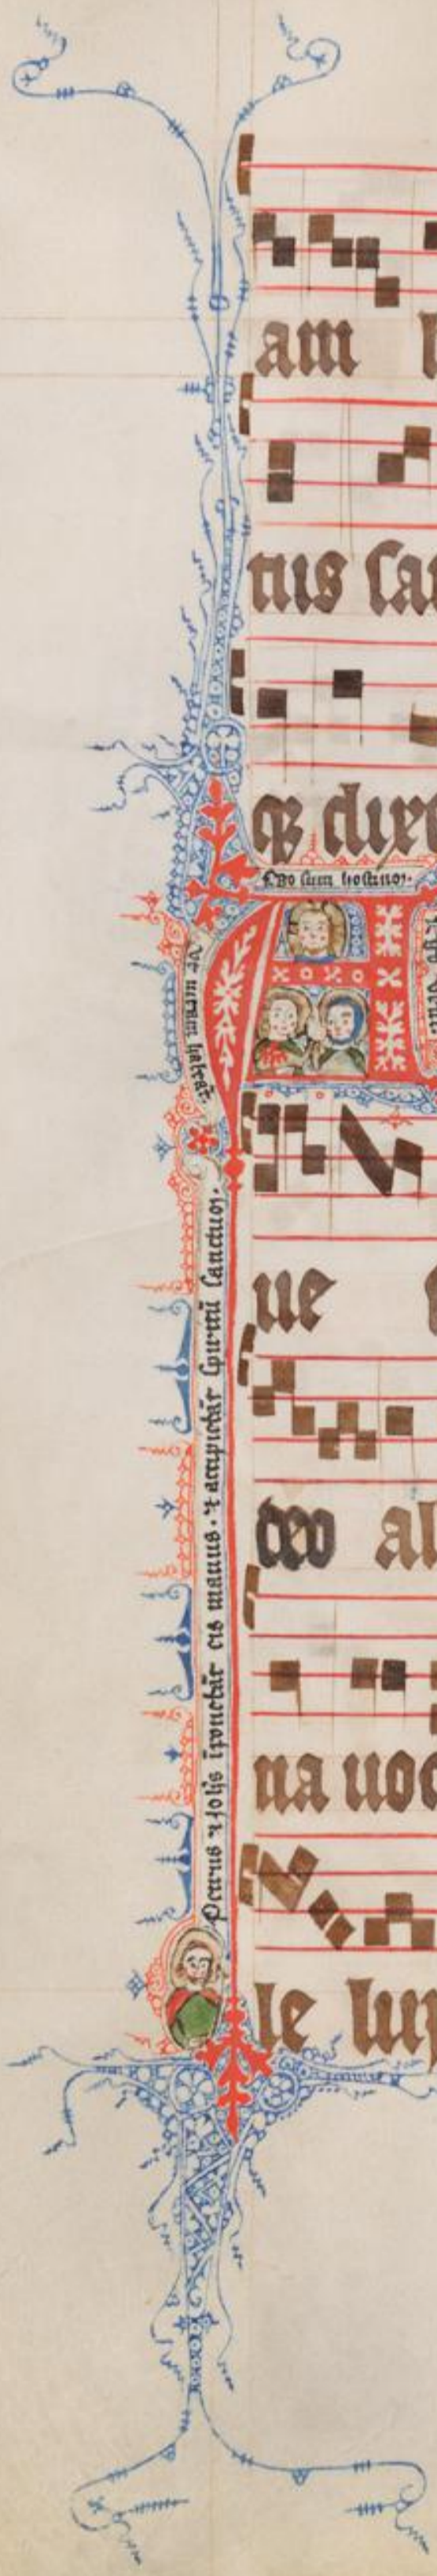 am
tus sa
qz dixer
Ego sum hostium.
ut uitam habeat.
ue
Petrus ⁊ Joh̄s īponebāt eis manus. ⁊ accipiebāt spiritū sanctum.
deo al
na uoc
le lu